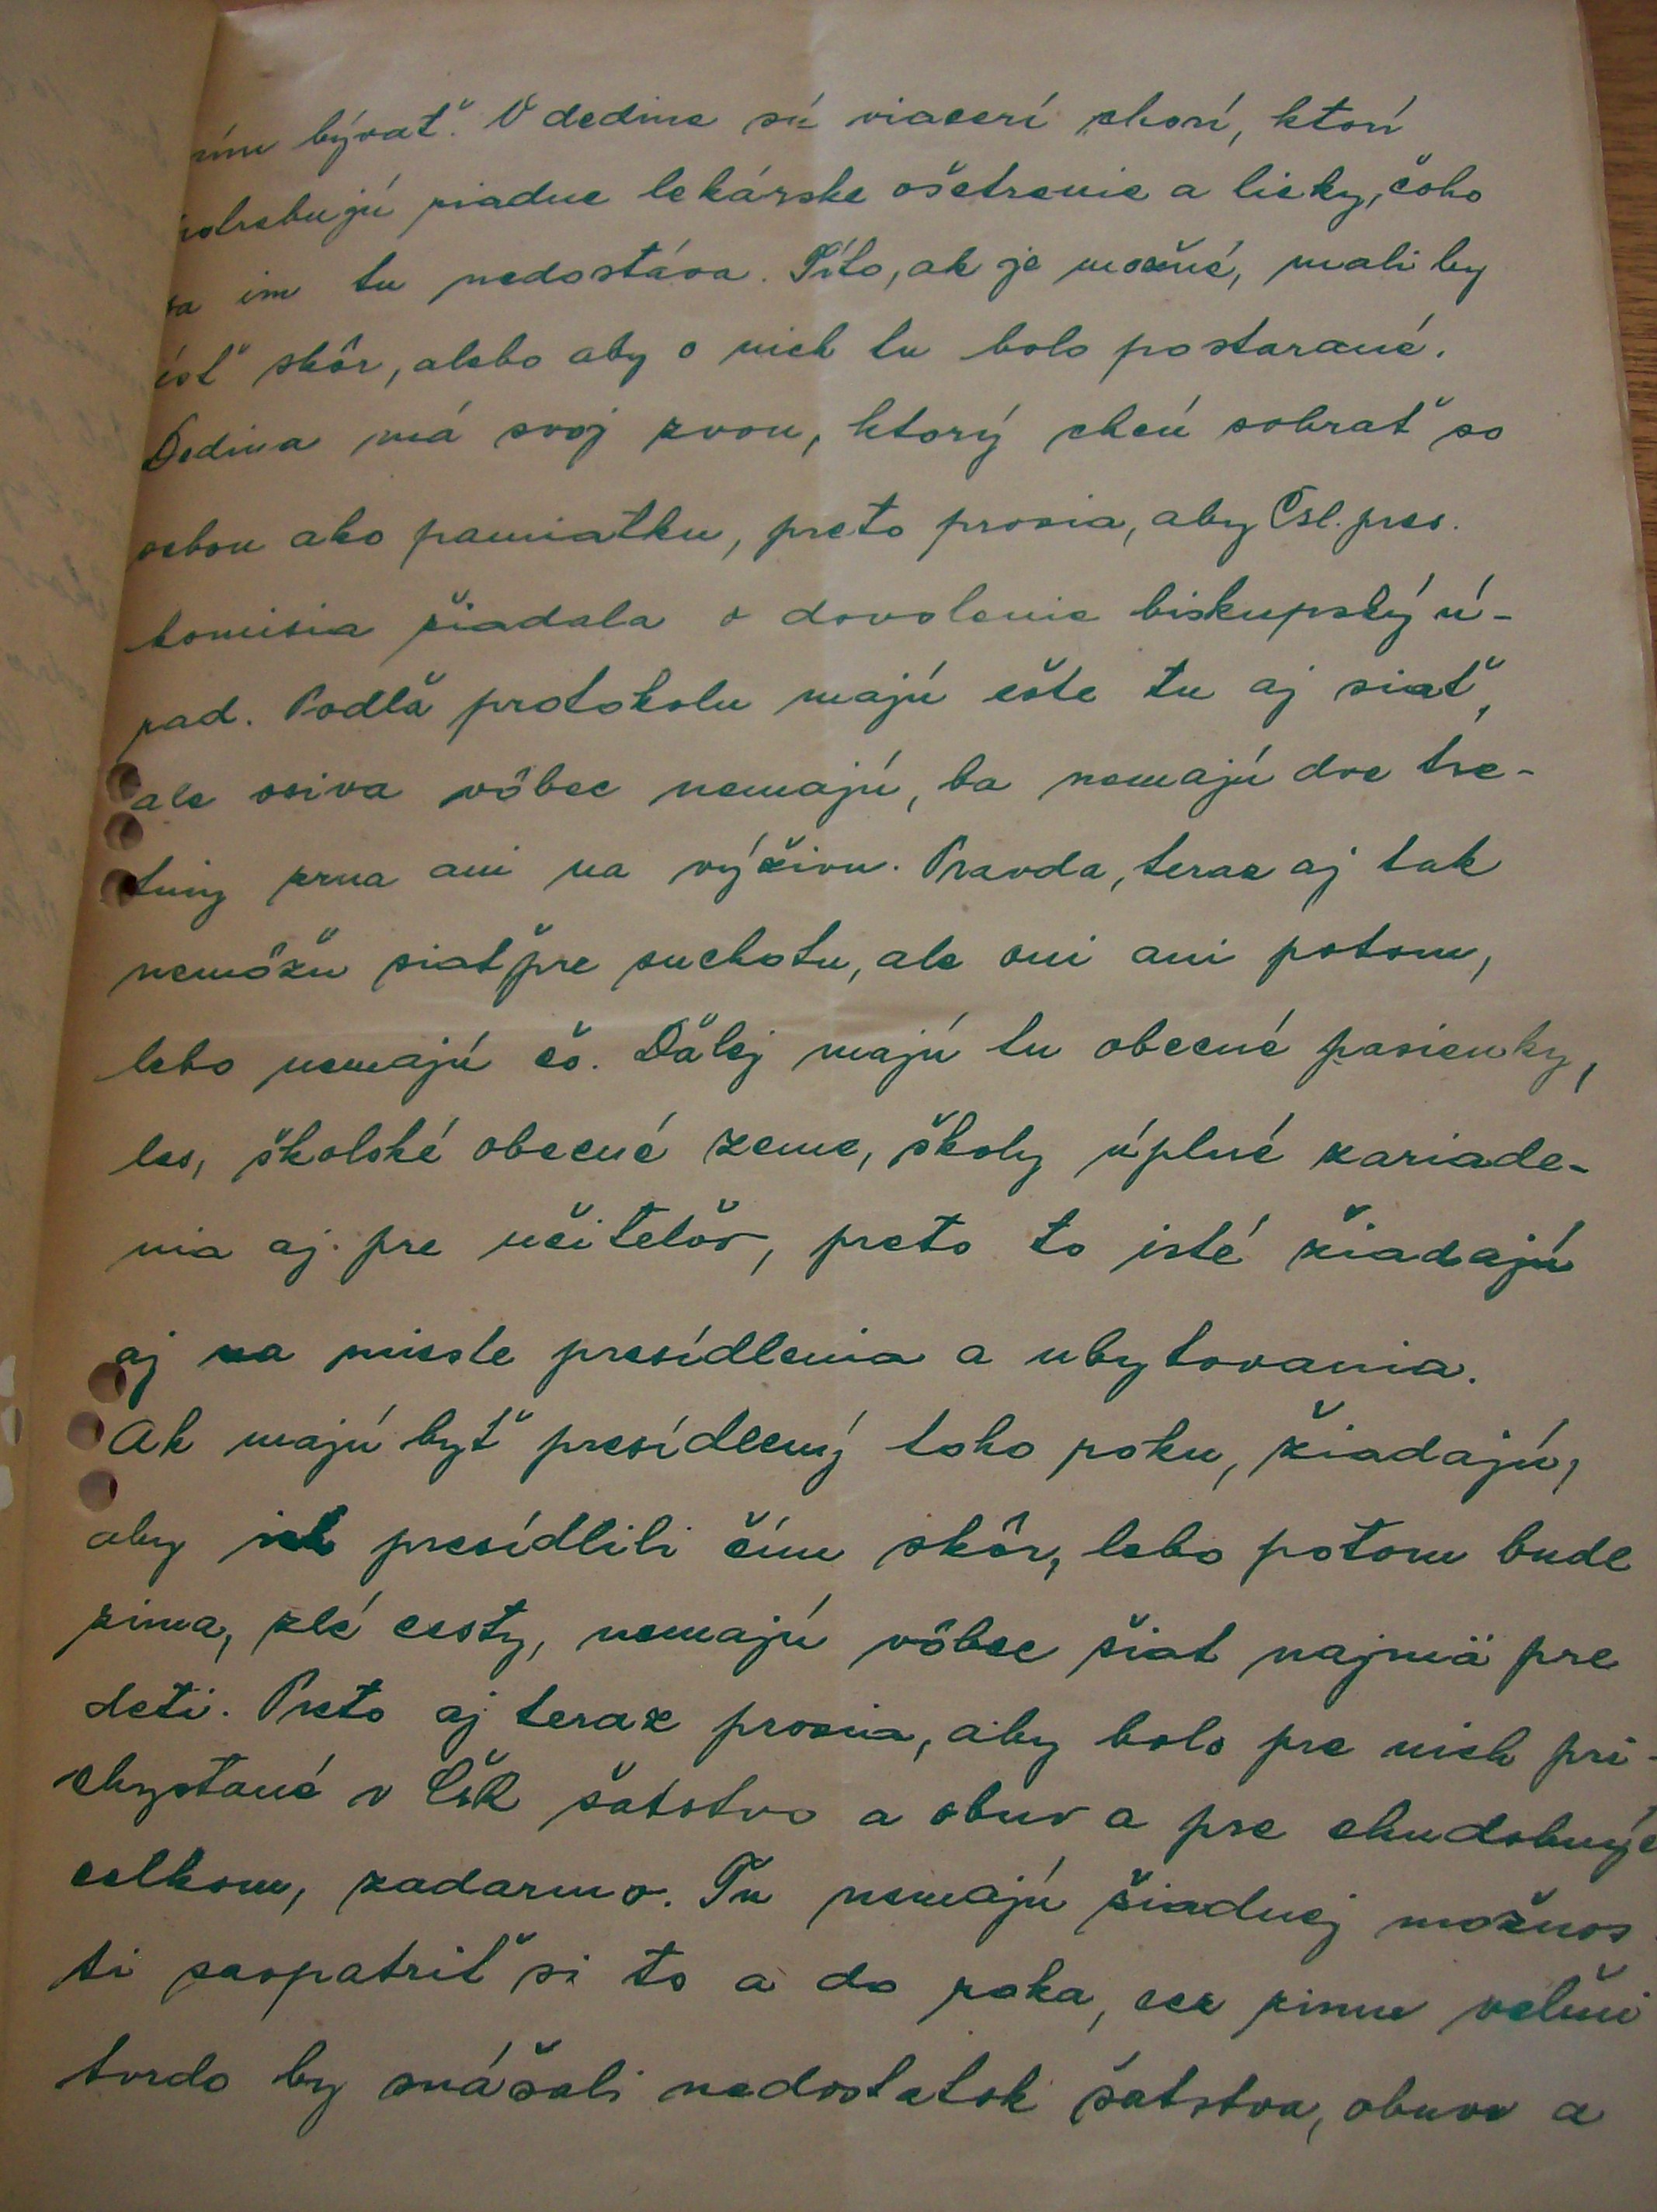 bývať. V dedine sú viacerí chorí, ktorí
potrebujú riadne lekárske ošetrenie a lieky, čoho
sa im tu nedostáva. Títo, ak je možné, mali by
ísť skôr, alebo aby o nich tu bolo postarané.
Dedina má svoj zvon, ktorý chcú sobrať so
sebou ako pamiatku, preto prosia, aby Čsl. pres.
komisia žiadala o dovolenie biskupský ú-
rad. Podľa protokolu majú ešte tu aj siať,
ale osiva vôbec nemajú, ba nemajú dve tre-
tiny zrna ani na výživu. Pravda, teraz aj tak
nemôžu siať pre suchotu, ale oni ani potom,
lebo nemajú čo. Ďalej majú tu obecné pasienky,
les, školské obecné zeme, školy úplné zariade-
nia aj pre učiteľov, preto to isté žiadajú
aj na mieste presídlenia a ubytovania.
Ak majú byť presídlený toho roku, žiadajú,
aby ich presídlili čím skôr, lebo potom bude
zima, zlé cesty, nemajú vôbec šiat najmä pre
deti. Preto aj teraz prosia, aby bolo pre nich pri-
chystané v ČSR šatstvo a obuv a pre chudobných
celkom, zadarmo. Tu nemajú žiadnej možnos-
ti zaopatriť si to a do roka, cez zimu veľmi
tvrdo by snášali nedostatok šatstva, obuvi a